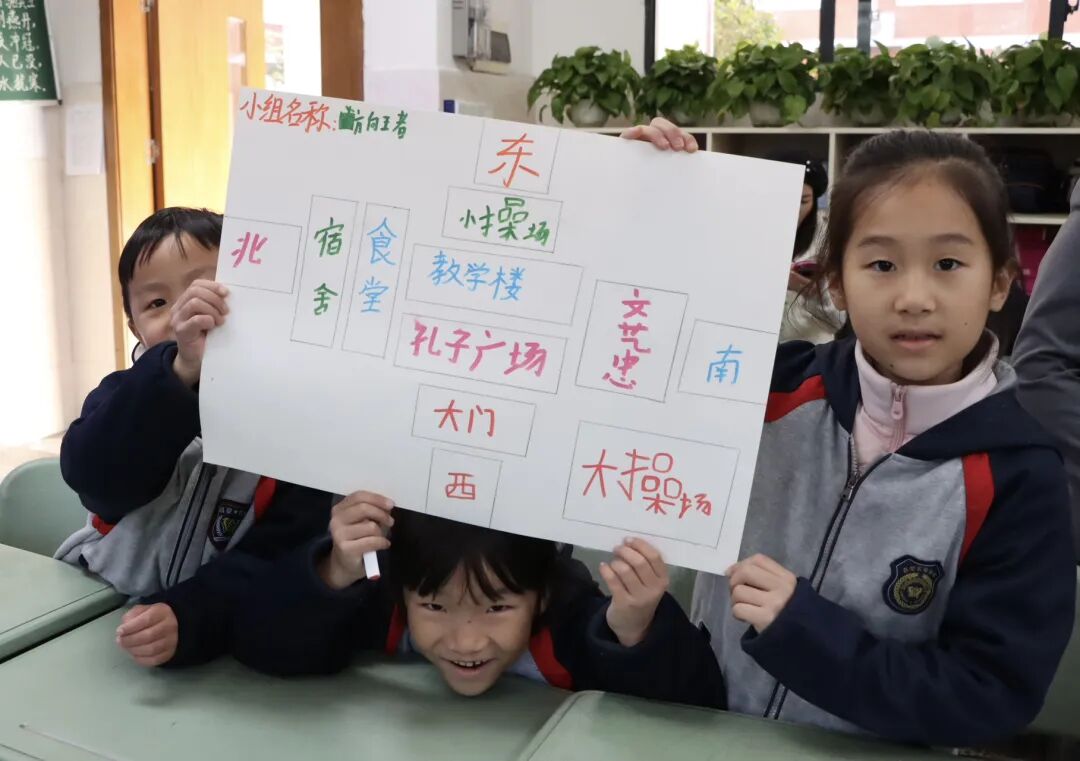 小组名称:方向王者
东
小操场
北
宿舍
食堂
教学楼
孔子广场
文艺忠
南
大门
西
大操场